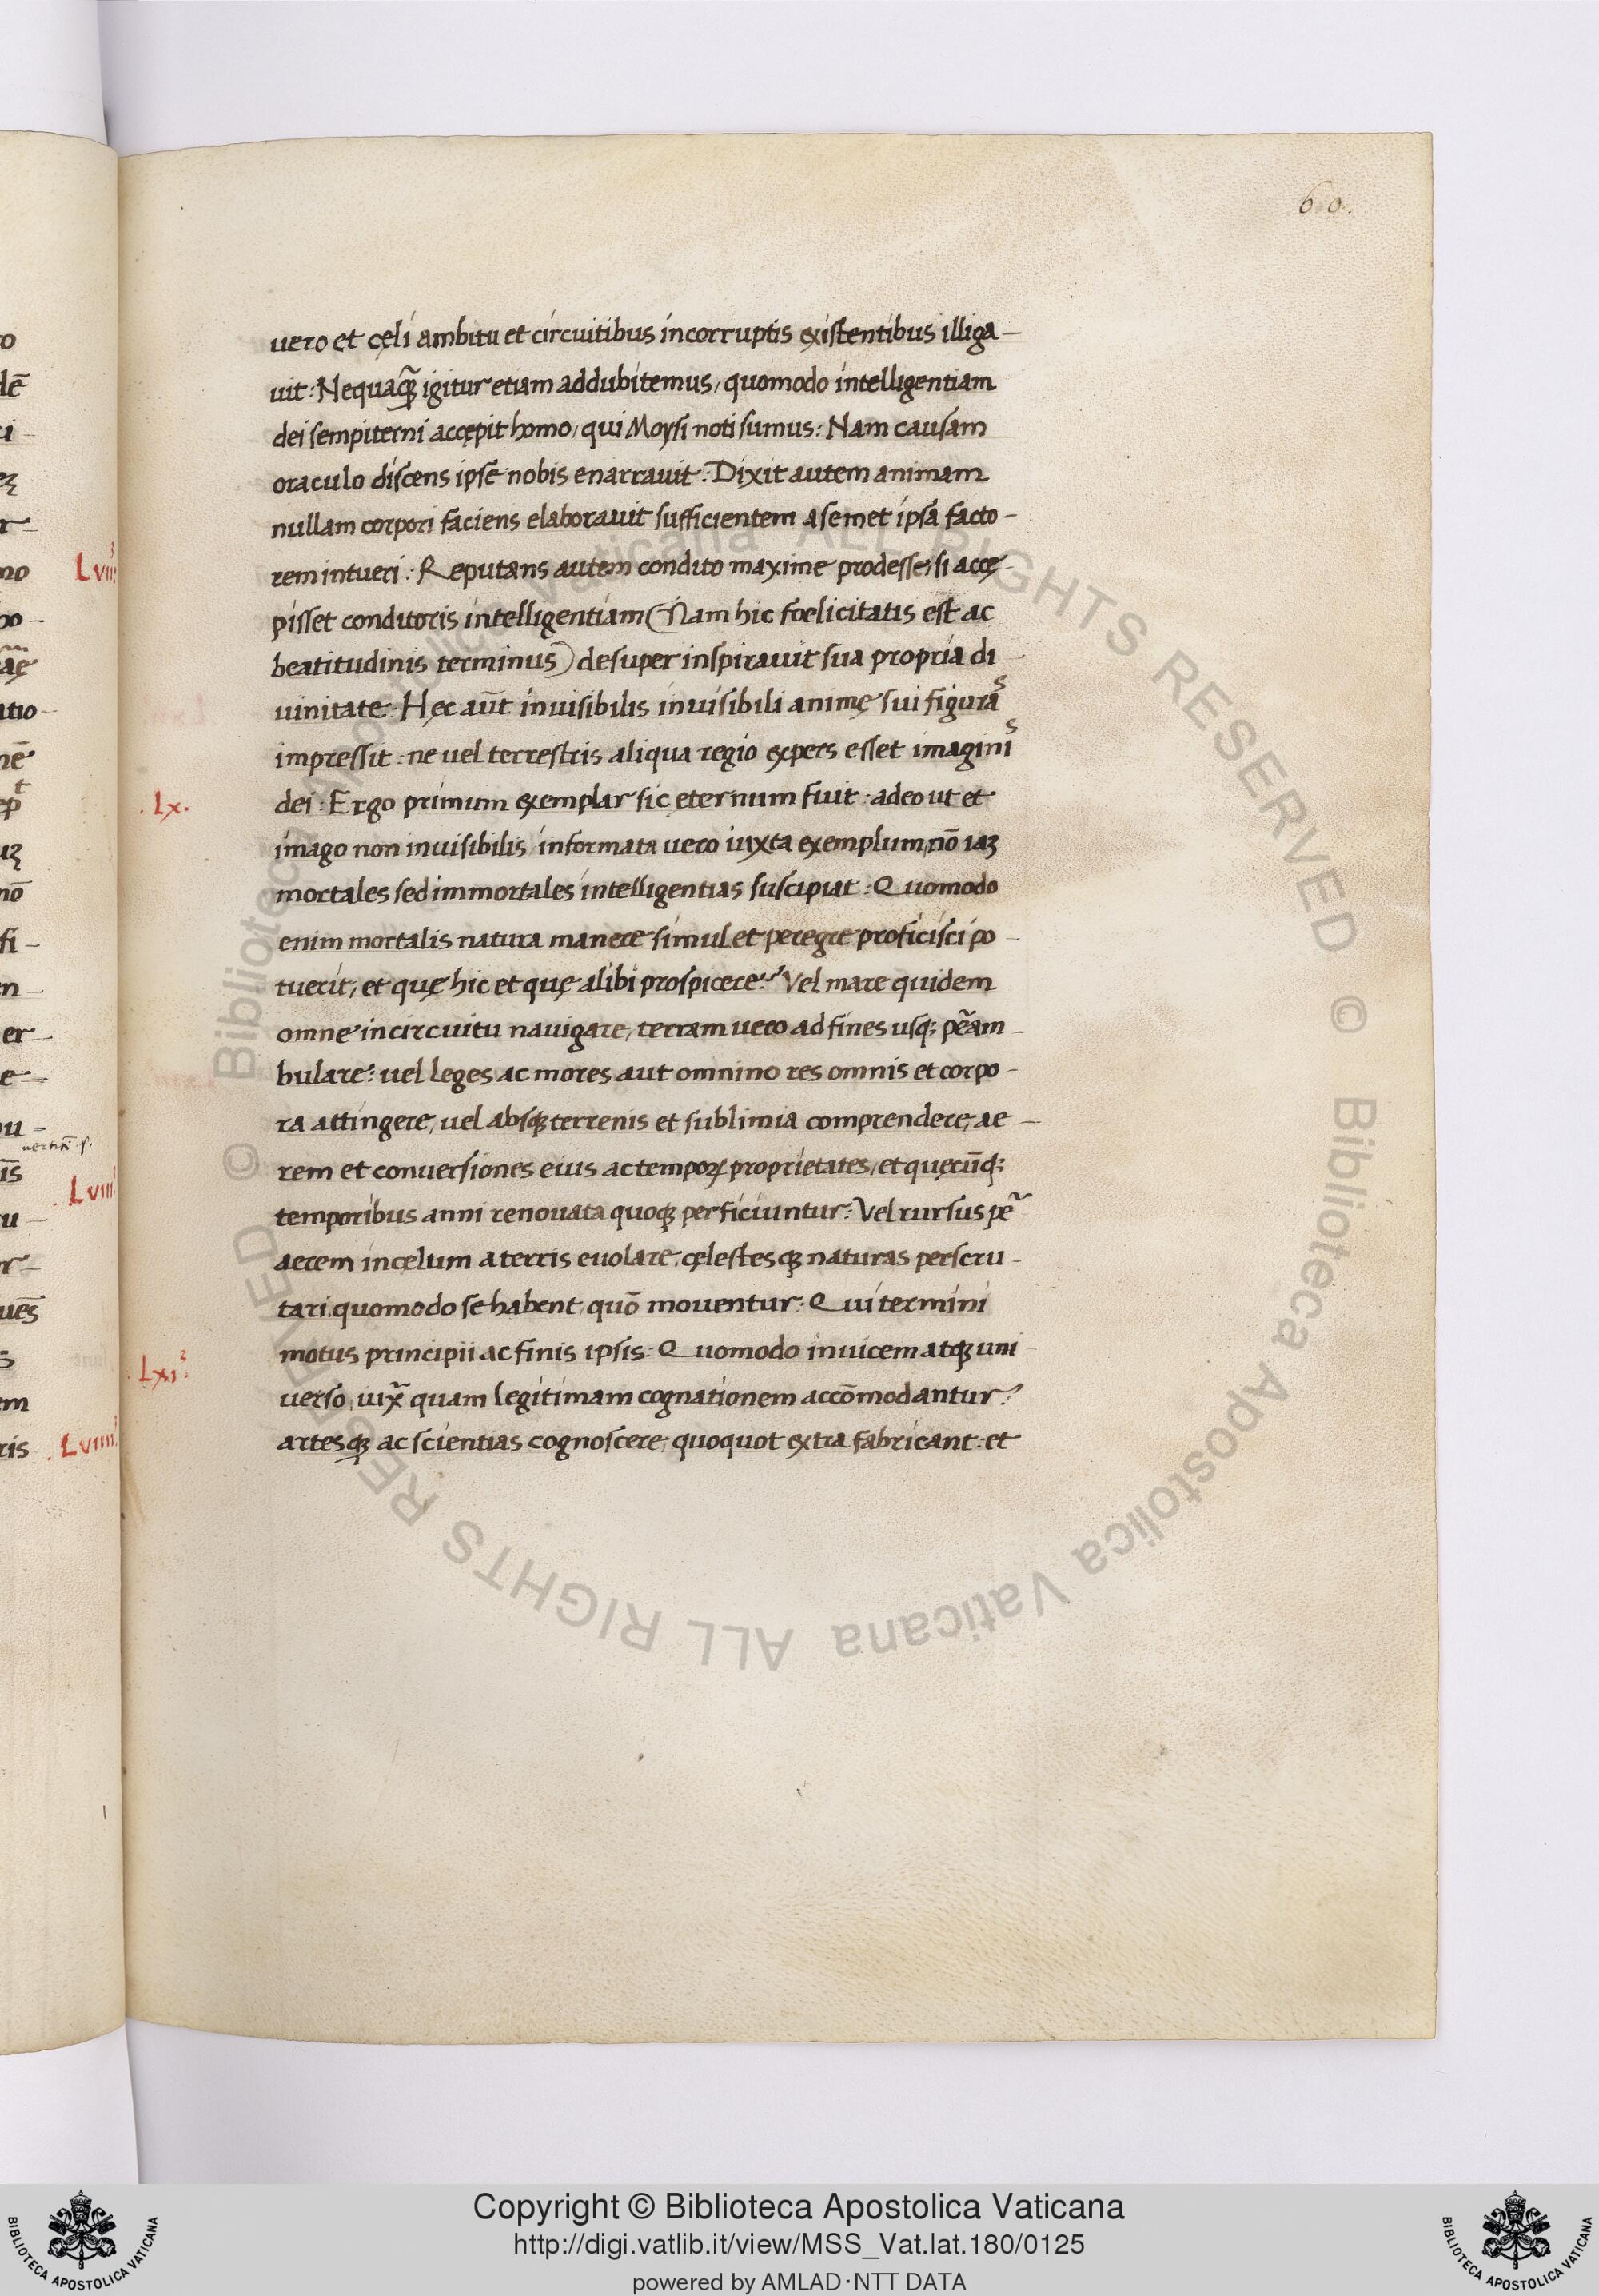 60.
uero et cęli ambitu et circuitibus incorruptis existentibus illiga-
uit: Nequaq̃ igitur etiam addubitemus, quomodo intelligentiam
dei sempiterni accępit homo, qui Moysi noti sumus: Nam causam
oraculo discens ipse nobis enarrauit: Dixit autem animam
nullam corpori faciens elaborauit sufficientem a semet ipsa facto-
rem intueri: Reputans autem condito maxime prodesse, si accę-
pisset conditoris intelligentiam (Nam hic foelicitatis est ac
beatitudinis terminus) desuper inspirauit sua propria di
uinitate: Hęc aūt inuisibilis inuisibili animę sui figuras
impressit: ne uel terrestris aliqua regio expers esset imaginis
.Lx. dei: Ergo primum exemplar sic ęternum fuit: adeo ut et
imago non inuisibilis informata uero iuxta exemplum, nō iaꝫ
mortales sed immortales intelligentias suscipiat: Quomodo
enim mortalis natura manere simul et peregre proficisci po-
tuerit, et quę hic et quę alibi prospicere? Vel mare quidem
omne in circuitu nauigare, terram uero ad fines usq; pēam-
bulare: uel leges ac mores aut omnino res omnis et corpo-
ra attingere, uel absqꝫ terrenis et sublimia comprendere, ae-
rem et conuersiones eius ac tempoꝝ proprietates, et quęcūq;
temporibus anni renouata quoqꝫ perficiuntur: Vel rursus pē
aerem in cęlum a terris euolare, cęlestesqꝫ naturas perscru-
tari, quomodo se habent, quō mouentur: Qui termini
motus principii ac finis ipsis: Quomodo inuicem atqꝫ uni
.Lxi. uerso, iux̃ quam legitimam cognationem accōmodantur?
artesqꝫ ac scientias cognoscere, quoquot extra fabricant: et
Copyright © Biblioteca Apostolica Vaticana
http://digi.vatlib.it/view/MSS_Vat.lat.180/0125
powered by AMLAD·NTT DATA
BIBLIOTECA APOSTOLICA VATICANA
BIBLIOTECA APOSTOLICA VATICANA
© Biblioteca Apostolica Vaticana ALL RIGHTS RESERVED © Biblioteca Apostolica Vaticana ALL RIGHTS RESERVED